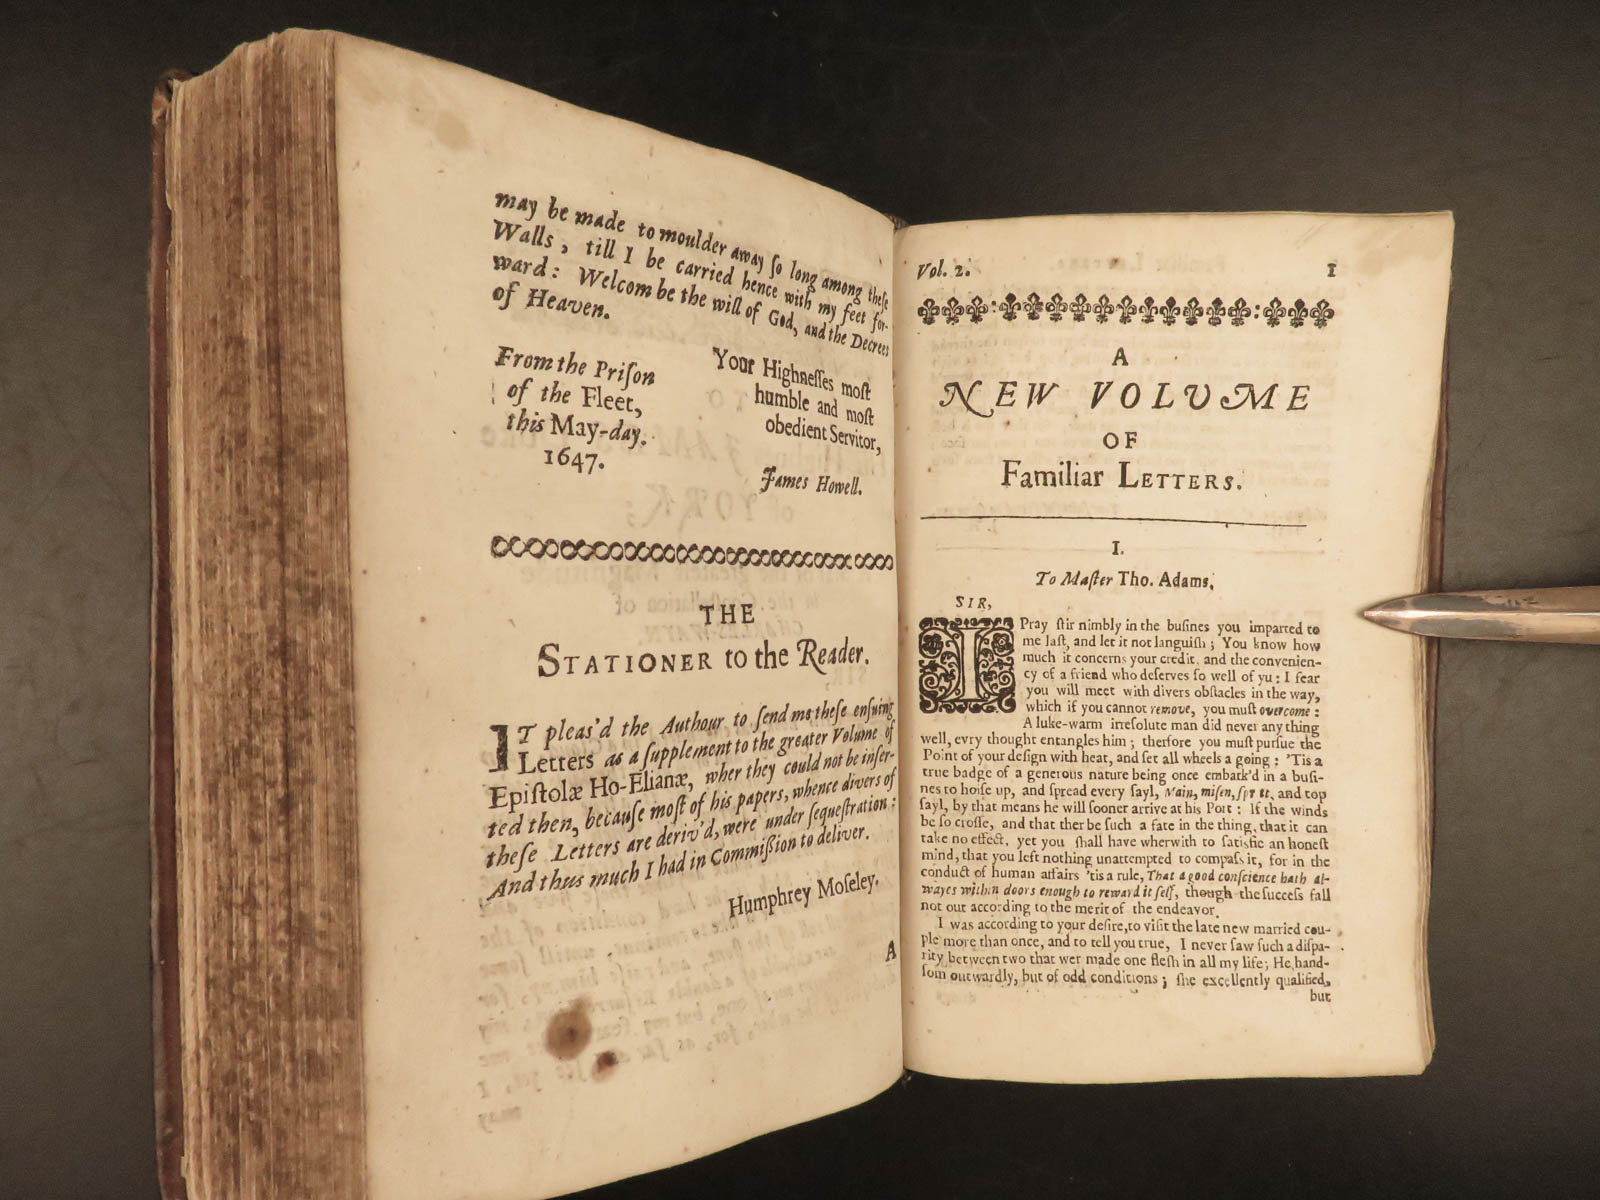 may be made to moulder away ſo long among theſe
Walls, till I be carried hence with my feet for-
ward: Welcom be the will of God, and the Decrees
of Heaven.
From the Priſon
of the Fleet,
this May-day.
1647.
Your Highneſſes moſt
humble and moſt
obedient Servitor,
James Howell.
THE
STATIONER to the Reader.
IT pleas'd the Authour to ſend me theſe enſuing
Letters as a ſupplement to the greater Volume of
Epiſtolæ Ho-Elianæ, wher they could not be inſer-
ted then, becauſe moſt of his papers, whence divers of
theſe Letters are deriv'd, were under ſequeſtration:
And thus much I had in Commiſsion to deliver.
Humphrey Moſeley.
A
Vol. 2. 1
A
NEW VOLUME
OF
Familiar LETTERS.
I.
To Maſter Tho. Adams,
SIR,
I Pray ſtir nimbly in the buſines you imparted to
me laſt, and let it not languiſh; You know how
much it concerns your credit, and the convenien-
cy of a friend who deſerves ſo well of yu: I fear
you will meet with divers obſtacles in the way,
which if you cannot remove, you muſt overcome:
A luke-warm irreſolute man did never any thing
well, evry thought entangles him; therfore you muſt purſue the
Point of your deſign with heat, and ſet all wheels a going: 'Tis a
true badge of a generous nature being once embark'd in a buſi-
nes to hoiſe up, and ſpread every ſayl, Main, miſen, and top
ſayl, by that means he will ſooner arrive at his Port: If the winds
be ſo croſſe, and that ther be ſuch a fate in the thing, that it can
take no effect, yet you ſhall have wherwith to ſatisfie an honeſt
mind, that you left nothing unattempted to compaſs it, for in the
conduct of human affairs 'tis a rule, That a good conſcience hath al-
wayes within doors enough to reward it ſelf, though the ſucceſs fall
not out according to the merit of the endeavor.
I was according to your deſire, to viſit the late new married cou-
ple more than once, and to tell you true, I never ſaw ſuch a diſpa-
rity between two that wer made one fleſh in all my life; He hand-
ſom outwardly, but of odd conditions; ſhe excellently qualified,
but